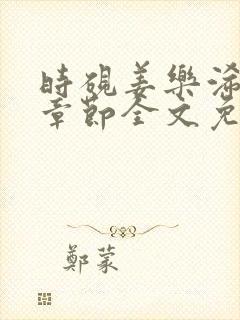 時硯姜樂浠
章節全文免
鄭蒙